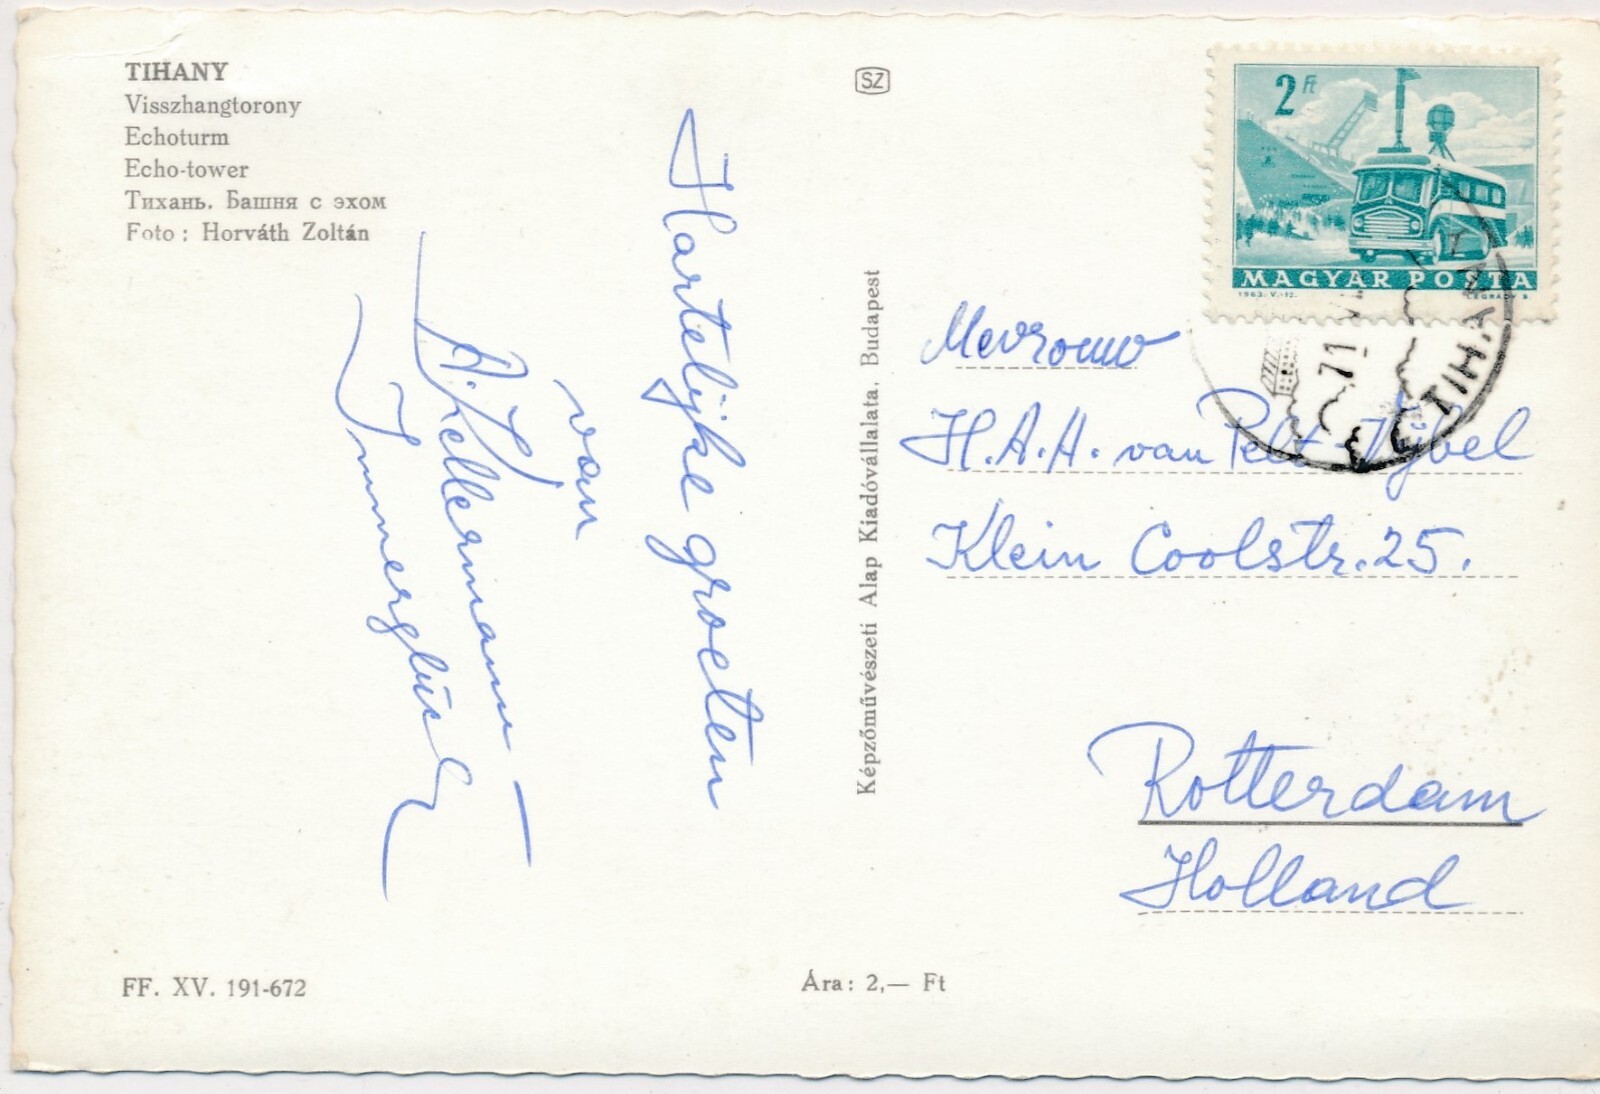 TIHANY
Visszhangtorony
Echoturm
Echo-tower
Тихань. Башня с эхом
Foto: Horváth Zoltán
Hartelijke groeten
van
A. Kellermann -
FF. XV. 191-672
SZ
Képzőművészeti Alap Kiadóvállalata, Budapest
Ára: 2,— Ft
2 Ft
MAGYAR POSTA
1963. V.-12.
LÉGRÁDY S.
TIHANY
71
Mevrouw
H.A.A. van Pelt-Nybel
Klein Coolstr. 25.
Rotterdam
Holland